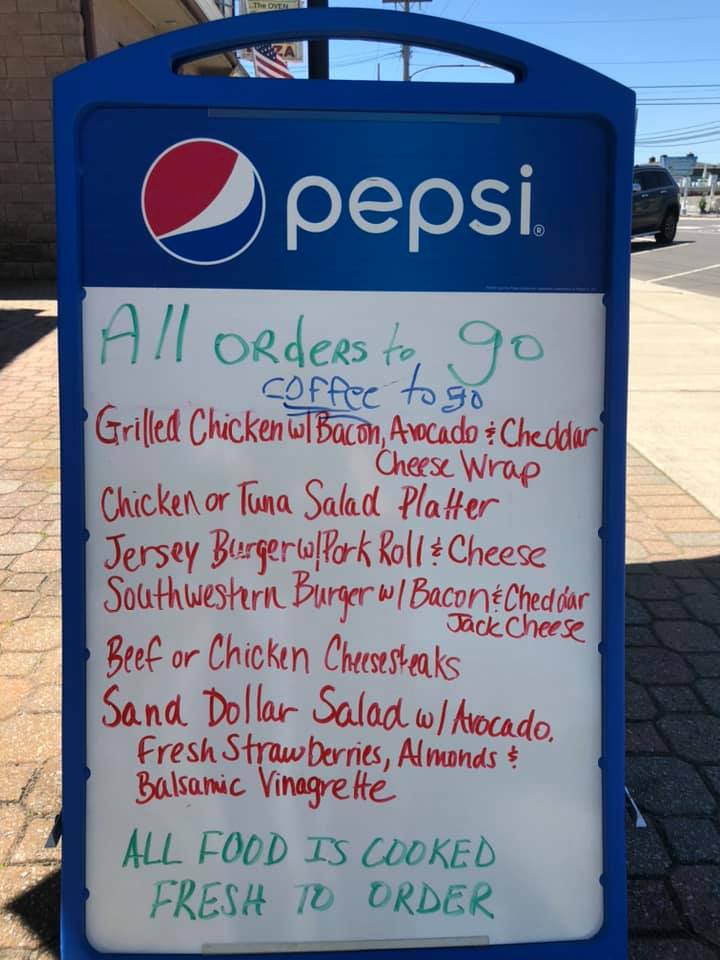 The OVEN
ZA
pepsi®
All ORdeRs to go
coffee to go
Grilled Chicken w/Bacon, Avocado & Cheddar
Cheese Wrap
Chicken or Tuna Salad Platter
Jersey Burger w/Pork Roll & Cheese
Southwestern Burger w/ Bacon & Cheddar
Jack Cheese
Beef or Chicken Cheesesteaks
Sand Dollar Salad w/ Avocado,
Fresh Strawberries, Almonds &
Balsamic Vinagrette
ALL FOOD IS COOKED
FRESH TO ORDER